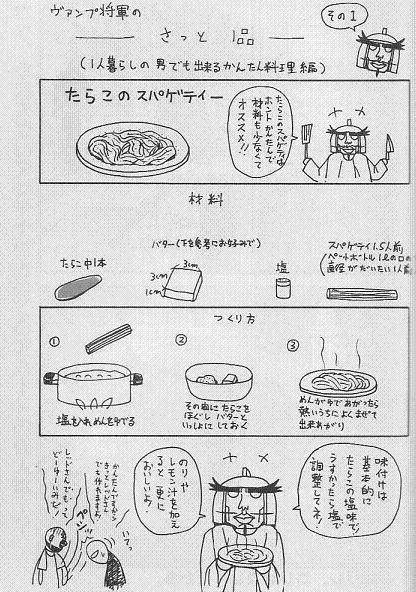 ヴァンプ将軍の
さっと1品
その1
(1人暮らしの男でも出来るかんたん料理編)
たらこのスパゲティー
たらこのスパゲティは
ホントかんたんで
材料も少なくて
オススメ!!
材料
たらこ中1本
バター(下を参考にお好みで)
3cm
3cm
1cm
塩
スパゲティ1.5人前
(ペットボトル1ℓの口の
直径がだいたい1人前)
つくり方
①
塩を入れめんをゆでる
②
その間にたらこを
ほぐしバターと
いっしょにしておく
③
めんがゆであがったら
熱いうちによくまぜて
出来あがり
味付けは
基本的に
たらこの塩味で!
うすかったら塩で
調整してネ!
のりや
レモン汁を加え
ると更に
おいしいよ!
かんたんですから
きっとレッドさん
でも作れますよ!
レッドさんでもって
どーゆーいみだ!
ペシッ
いてっ